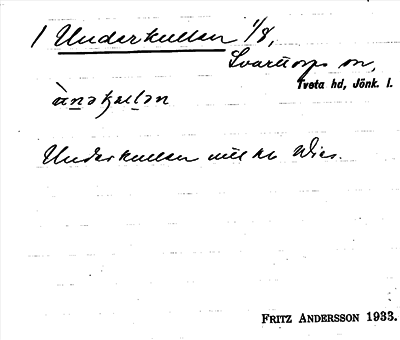 1 Underkullen 1/8,
Svarttorps sn,
Tveta hd, Jönk. l.
Underkullen
FRITZ ANDERSSON 1933.